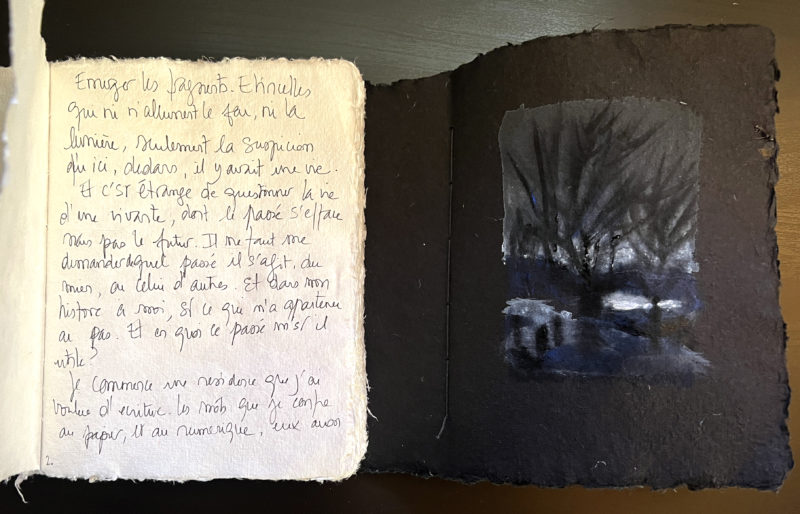 les fragments. Etincelles
qui ni n'allument le feu, ni la
lumière, seulement la suspicion
qu'ici, dedans, il y avait une vie.
Et c'est étrange de questionner la vie
d'une vivante, dont le passé s'efface
mais pas le futur. Il me faut me
demander duquel passé il s'agit, du
mien, ou celui d'autres. Et dans mon
histoire à moi, si ce qui m'a appartenu
ou pas. Et en quoi ce passé m'est il
utile?
Je commence une résidence que j'ai
voulue d'écriture. Les mots que je confie
au papier, et au numérique, eux aussi
2.